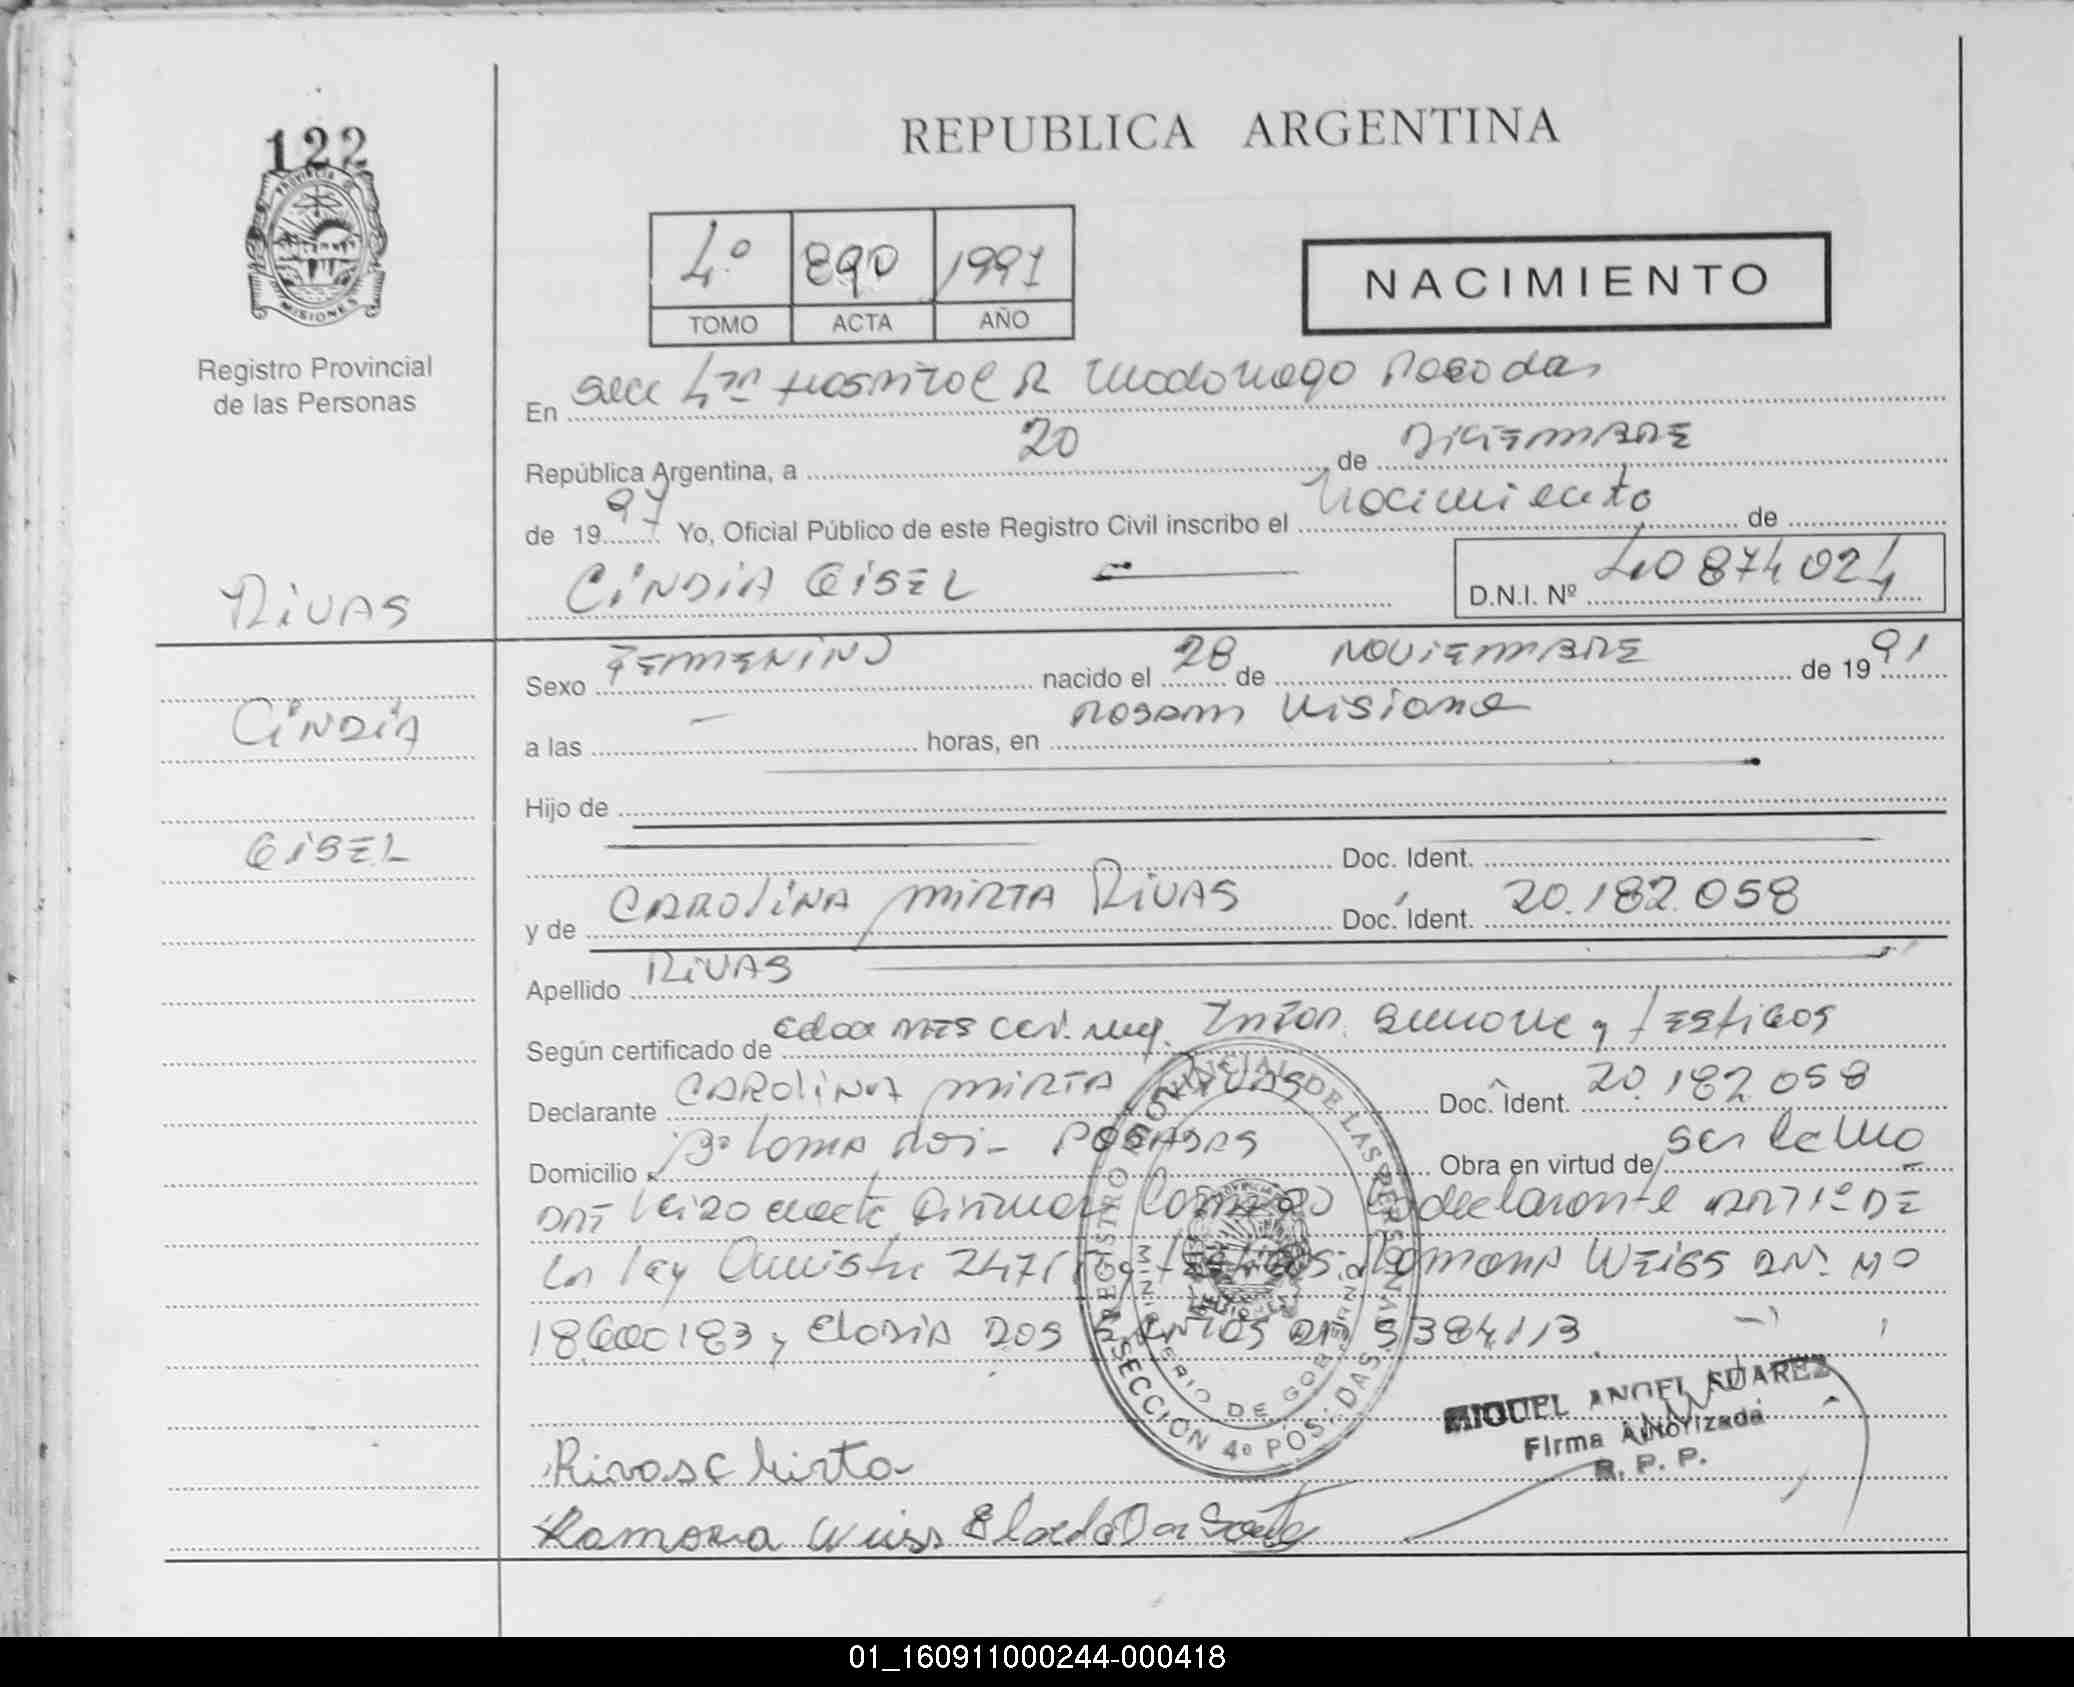 122
PROVINCIA DE
MISIONES
Registro Provincial
de las Personas
RIVAS
CINDIA
GISEL
REPUBLICA ARGENTINA
4º 890 1991
TOMO ACTA AÑO
NACIMIENTO
En Secc 4ta Hospital R Madariaga Posadas
República Argentina, a 20 de DICIEMBRE
de 1997 Yo, Oficial Público de este Registro Civil inscribo el Nacimiento de
CINDIA GISEL D.N.I. Nº 40874024
Sexo FEMENINO nacido el 28 de NOVIEMBRE de 1991
a las — horas, en Posadas Misiones
Hijo de
Doc. Ident.
y de CAROLINA MIRTA RIVAS Doc. Ident. 20.182.058
Apellido RIVAS
Según certificado de Testigos
Declarante CAROLINA MIRTA RIVAS Doc. Ident. 20.182.058
Domicilio POSADAS Obra en virtud de
declarante ART 1º DE
la ley Amnistía Ramona WEISS
18600183 y ELODIA DOS SANTOS 5384113
REGISTRO PROVINCIAL DE LAS PERSONAS
MINISTERIO DE GOBIERNO
SECCION 4º POSADAS
MIGUEL ANGEL SUAREZ
Firma Autorizada
R. P. P.
Rivas C Mirta
Ramona Weiss Elodia Do Santo
01_160911000244-000418